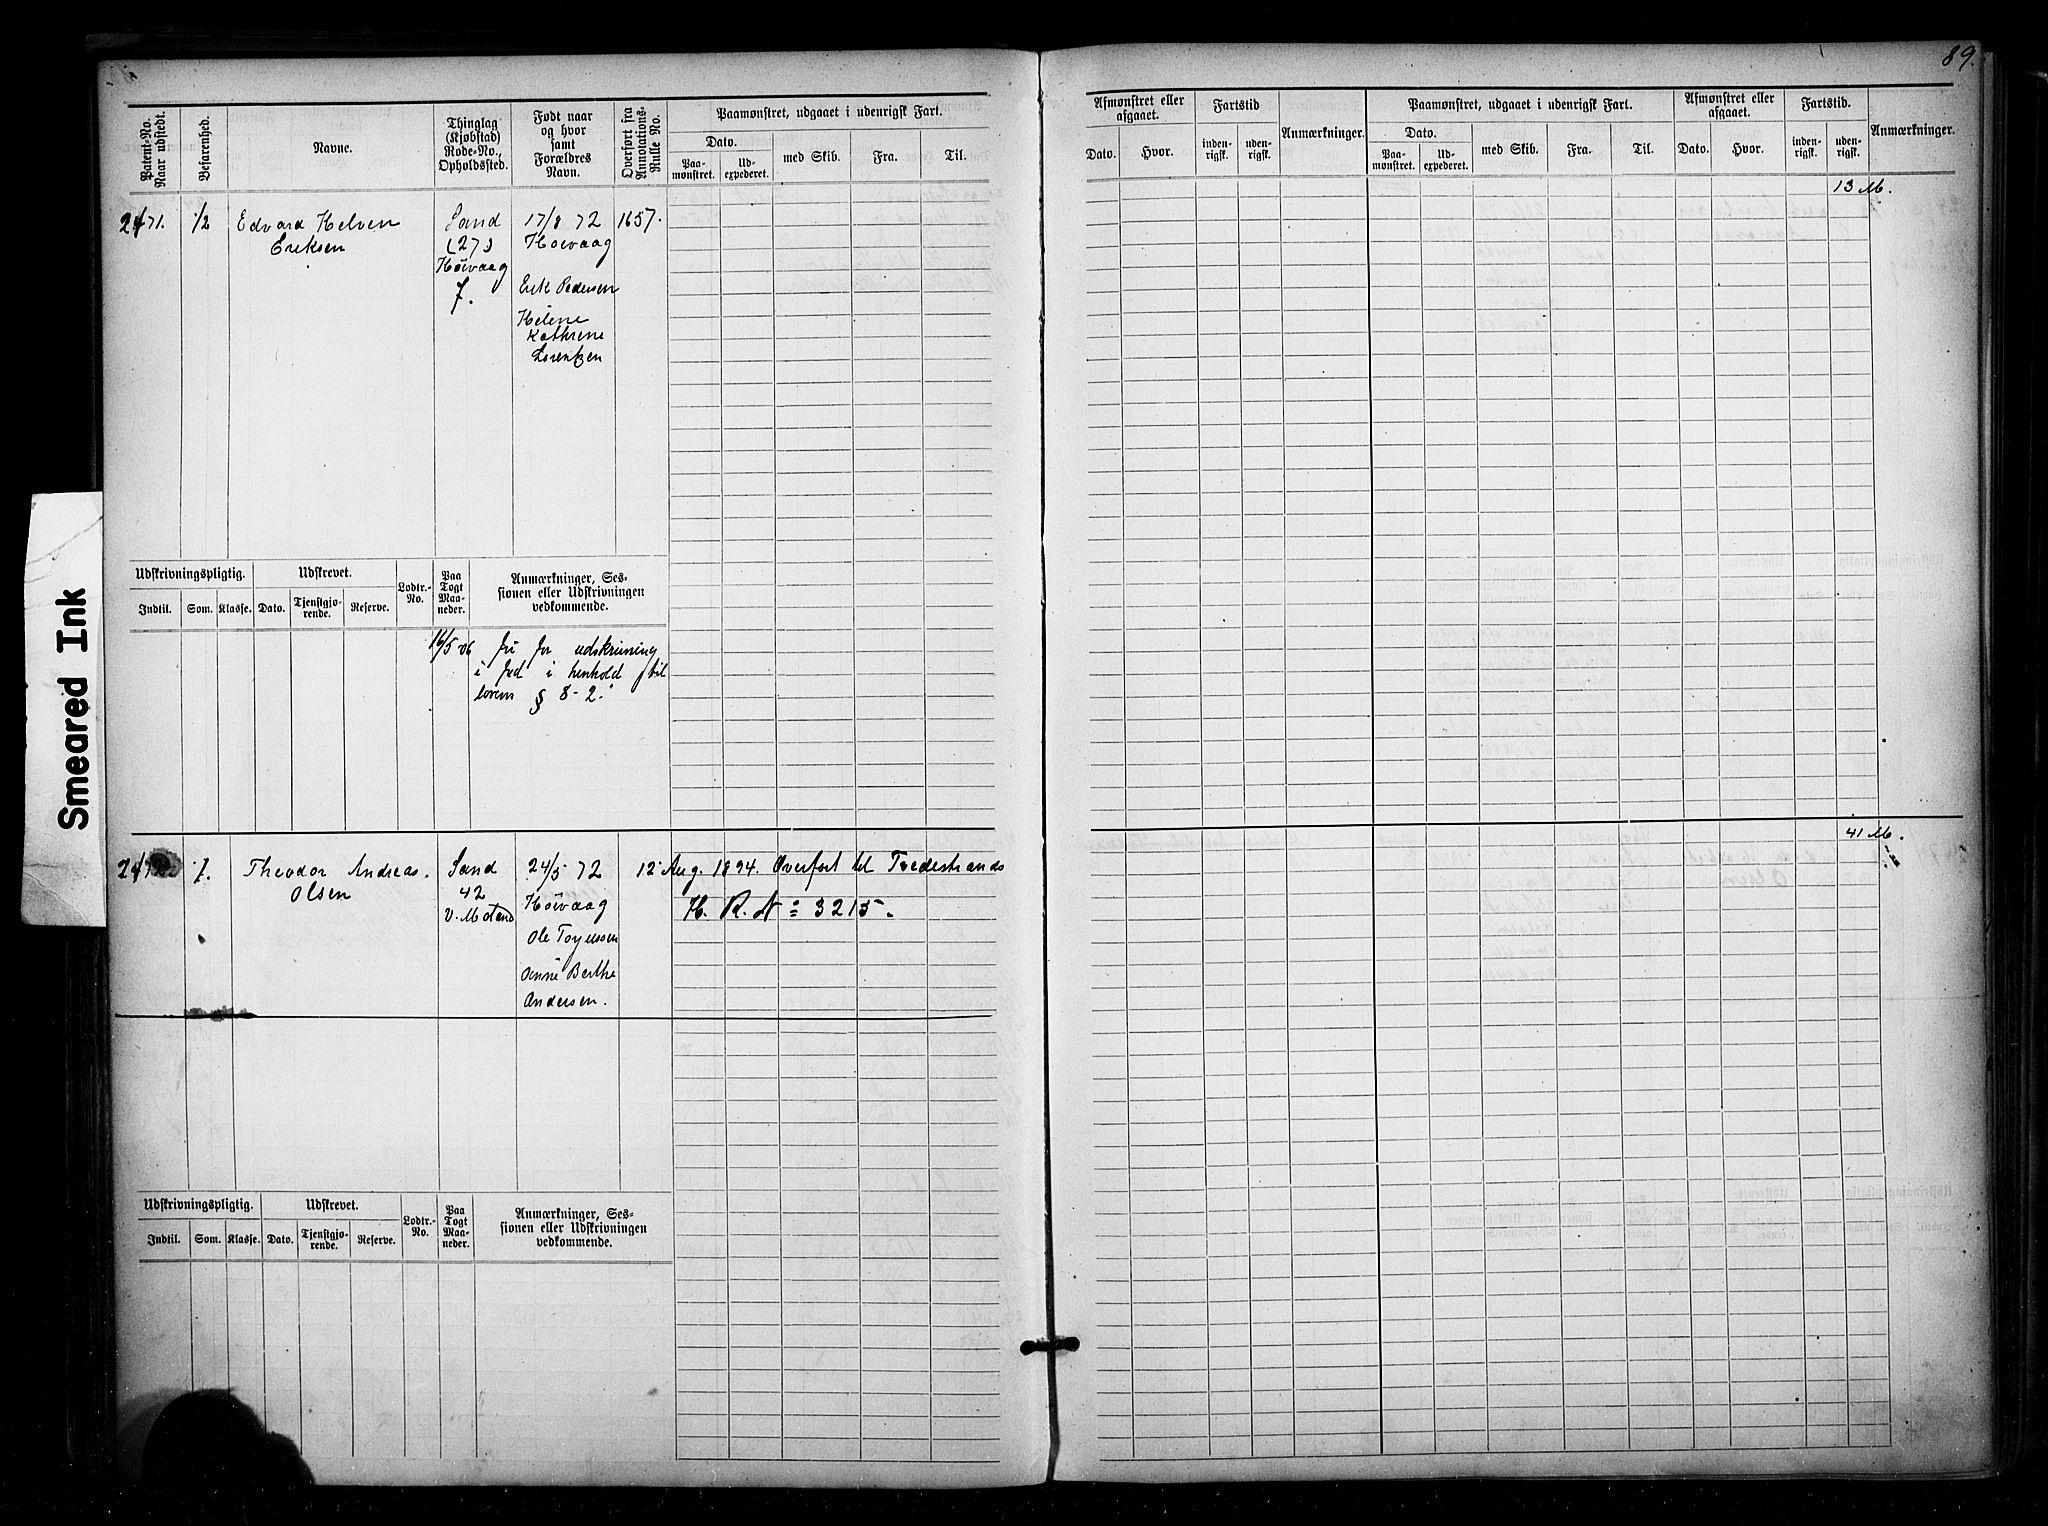 89.
Patent-No.
Naar udstedt.
Befarenhed.
Navne.
Thinglag
(Kjøbstad)
Rode-No.,
Opholdssted.
Født naar
og hvor
samt
Forældres
Navn.
Overført fra
Annotations-
Rulle No.
Paamønstret, udgaaet i udenrigsk Fart.
Dato.
Paa-
mønstret.
Ud-
expederet.
med Skib.
Fra.
Til.
Afmønstret eller
afgaaet.
Dato.
Hvor.
Fartstid
inden-
rigsk.
uden-
rigsk.
Anmærkninger.
Paamønstret, udgaaet i udenrigsk Fart.
Dato.
Paa-
mønstret.
Ud-
expederet.
med Skib.
Fra.
Til.
Afmønstret eller
afgaaet.
Dato.
Hvor.
Fartstid.
inden-
rigsk.
uden-
rigsk.
Anmærkninger.
13 M.
2471.
1/2
Edvard Helven
Eriksen
Sand
(27)
Høivaag
7.
17/8 72
Høivaag
Erik Pedersen
Helene
Kathrene
Lorentzen
1657.
Udskrivningspligtig.
Udskrevet.
Indtil.
Som.
Klasse.
Dato.
Tjenstgjø-
rende.
Reserve.
Lodtr.-
No.
Paa
Togt
Maa-
neder.
Anmærkninger, Ses-
sionen eller Udskrivningen
vedkommende.
16/5 06 fri for udskrivning
i fred i henhold til
loven § 8-2.
41 M.
Theodor Andreas.
Olsen
Sand
42
24/5 72
Høivaag
Ole Torjussen
Anne Berthe
Andersen.
12 Aug. 1894. Overført til Tvedestrands
H. R. N = 3215.
Udskrivningspligtig.
Udskrevet.
Indtil.
Som.
Klasse.
Dato.
Tjenstgjø-
rende.
Reserve.
Lodtr.-
No.
Paa
Togt
Maa-
neder.
Anmærkninger, Ses-
sionen eller Udskrivningen
vedkommende.
Smeared Ink